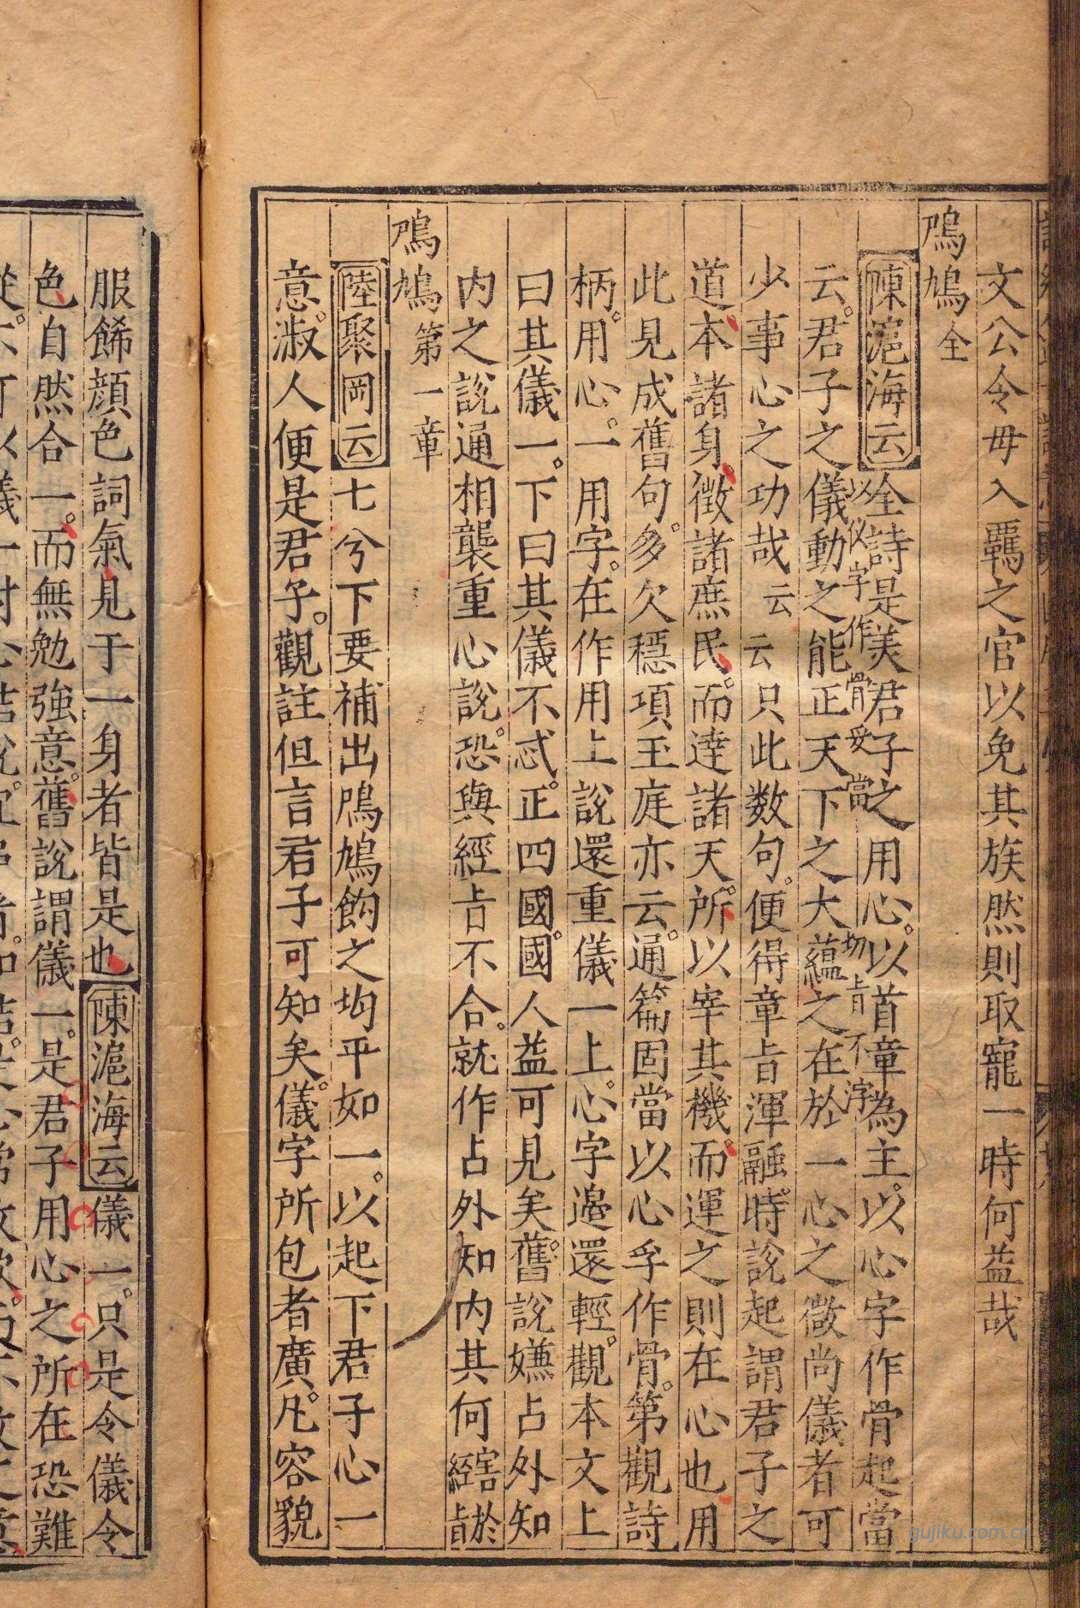 文公令毋入羈之官以免其族然則取寵一時何益哉
鳲鳩全
陳滬海云全詩是美君子之用心。以首章為主。以心字作骨起當
以儀字作骨妥當
切旨不浮
云。君子之儀動之能正天下之大蘊之在於一心之微尚儀者可
少事心之功哉云云只此数句。便得章旨渾融。時說起謂君子之
道本諸身徵諸庶民。而達諸天。所以宰其機。而運之則在心也用
此見成舊句。多欠穩項玉庭亦云。通篇固當以心孚作骨。第觀詩
柄。用心。一用字。在作用上說還重儀一上。心字邊還輕。觀本文上
曰其儀一。下曰其儀不忒。正四國。國人益可見矣。舊說嫌占外知
內之說通相襲重心說。恐與經旨不合。就作占外知內其何害於經旨
鳲鳩第一章
陸聚岡云七兮下要補出鳲鳩飼之均平如一。以起下君子心一
意。淑人便是君子。觀註但言君子可知矣。儀字所包者廣。凡容貌
服餙顔色詞氣見于一身者皆是也陳滬海云儀一。只是令儀令
色自然合一。而無勉強意。舊說謂儀一。是君子用心之所在恐難